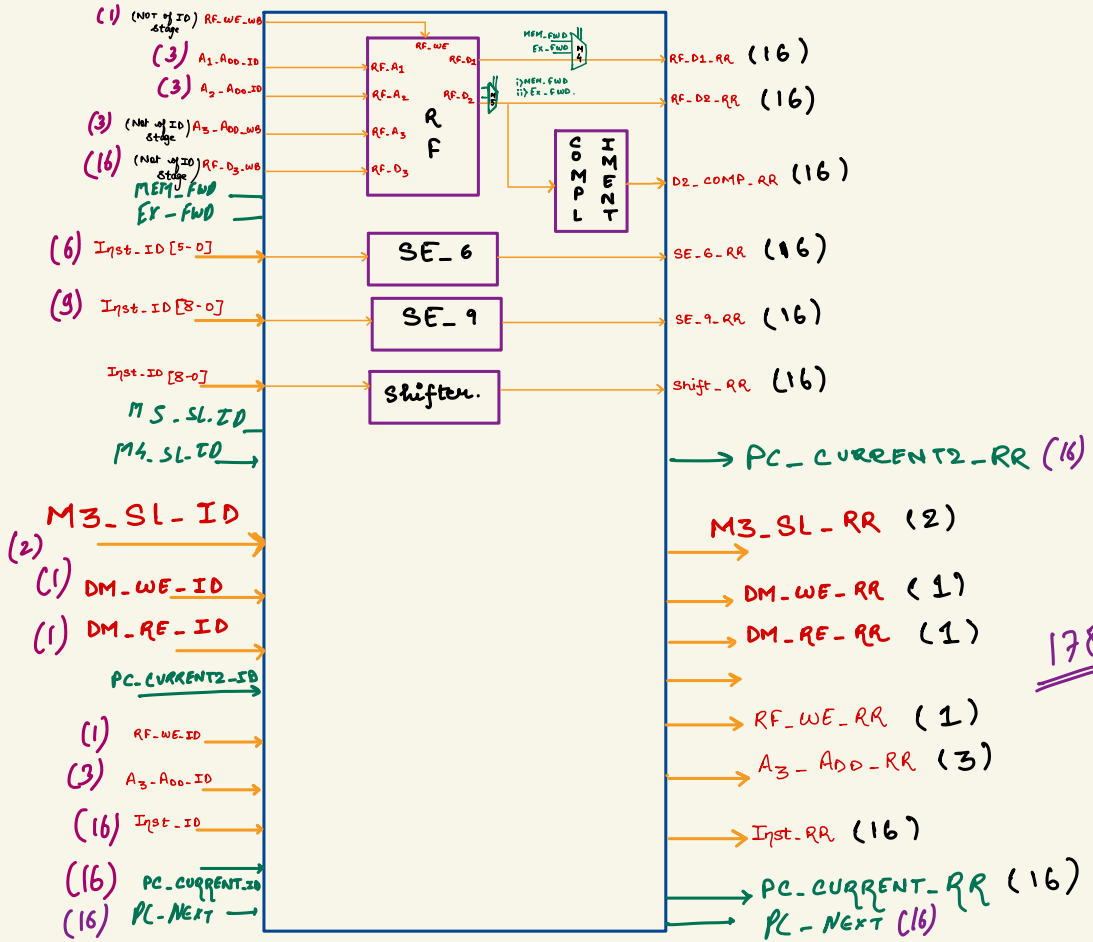 (1) (NOT of ID) Stage RF_WE_WB
(3) A1_ADD_ID
(3) A2_ADD_ID
(3) (Not of ID) Stage A3_ADD_WB
(16) (Not of ID) Stage RF_D3_WB
MEM_FWD
EX-FWD
(6) Inst_ID [5-0]
(9) Inst_ID [8-0]
Inst_ID [8-0]
M5_SL_ID
M4_SL_ID
M3_SL_ID
(2)
(1) DM_WE_ID
(1) DM_RE_ID
PC_CURRENT2_ID
(1) RF_WE_ID
(3) A3_ADD_ID
(16) Inst_ID
(16) PC_CURRENT_ID
(16) PC_NEXT
RF_WE
RF_A1
RF_A2
RF_A3
RF_D3
RF_D1
RF_D2
RF
MEM_FWD
EX_FWD
M4
i) MEM_FWD
ii) EX_FWD.
M5
COMPL
IMENT
SE_6
SE_9
Shifter.
RF_D1_RR (16)
RF_D2_RR (16)
D2_COMP_RR (16)
SE_6_RR (16)
SE_9_RR (16)
Shift_RR (16)
PC_CURRENT2_RR (16)
M3_SL_RR (2)
DM_WE_RR (1)
DM_RE_RR (1)
178
RF_WE_RR (1)
A3_ADD_RR (3)
Inst_RR (16)
PC_CURRENT_RR (16)
PC_NEXT (16)